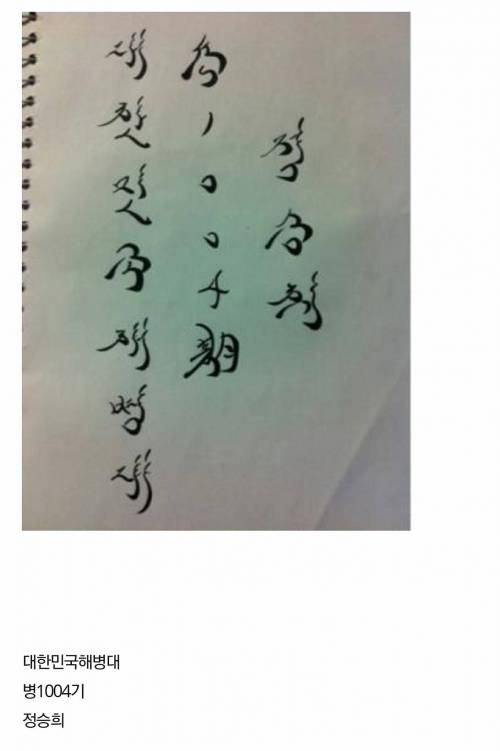 대한민국해병대
1004期
정승희
대한민국해병대
병1004기
정승희